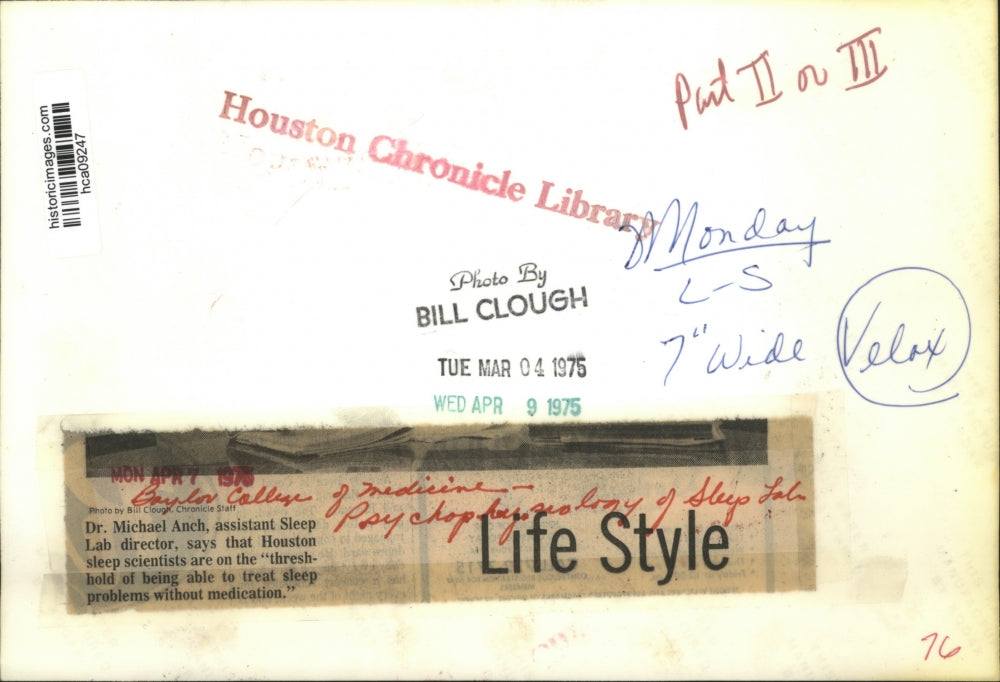 Part II or III
historicimages.com
hca09247
Houston Chronicle Library
Monday
L-S
7" Wide
Velox
Photo By
BILL CLOUGH
TUE MAR 04 1975
WED APR 9 1975
MON APR 7 1975
Baylor College of Medicine -
Psychophysiology of Sleep Lab
Photo by Bill Clough, Chronicle Staff
Dr. Michael Anch, assistant Sleep
Lab director, says that Houston
sleep scientists are on the “thresh-
hold of being able to treat sleep
problems without medication.”
Life Style
76